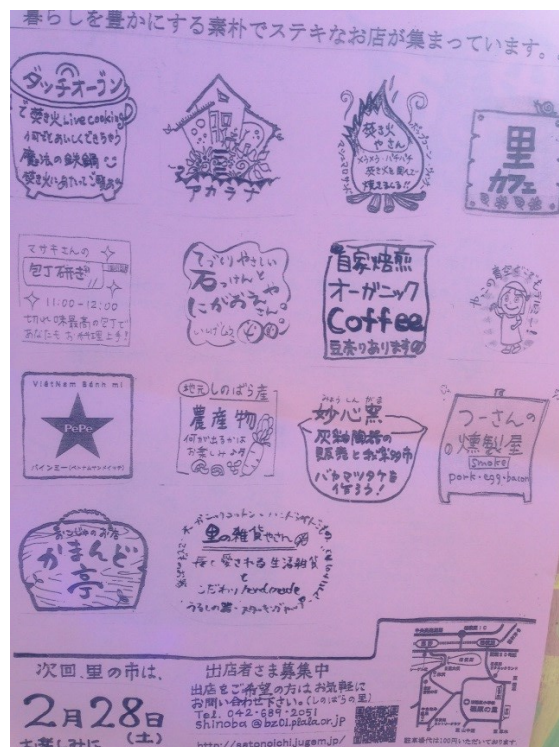 暮らしを豊かにする素朴でステキなお店が集まっています。
ダッチオーブン
で焚き火Live cooking
何でもおいしくできちゃう
魔法の鉄鍋
アカラナ
焚き火
やさん
里
カフェ
マサキさんの
包丁研ぎ
11:00-12:00
切れ味最高の包丁で
あなたもお料理上手!
てづくりやさしい
石っけんと
にがおえやさん。
自家焙煎
オーガニック
Coffee
豆売りあります
VietNam Bánh mì
PePe
バインミー(ベトナムサンドイッチ)
地元しのばら産
農産物
何が出るかは
お楽しみ♪
みょうしんがま
妙心窯
灰釉陶器の
販売とお楽しみ市
バカマツタケを
作ろう!
つーさんの
燻製屋
Smoke
pork・egg・bacon
かまんど
亭
里の雑貨やさん
長く愛される生活雑貨
と
こだわりhandmade
次回、里の市は、
2月28日
(土)
お楽しみに
出店者さま募集中
出店をご希望の方はお気軽に
お問い合わせ下さい。(しのばらの里)
Tel. 042-689-2051
shinoba@bz01.plala.or.jp
http://satonoichi.jugem.jp/
駐車場代は100円いただいております